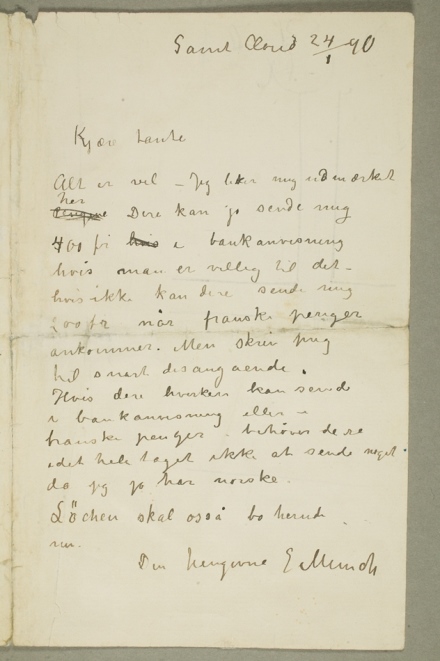 Saint Cloud 24/1 90
Kjære tante
Alt er vel – Jeg liker mig udmærket
her
Dere kan jo sende mig
400 fr i bankanvisning
hvis man er villig til det –
hvis ikke kan dere sende mig
200 fr når franske penger
ankommer. Men skriv mig
til snart desangaaende.
Hvis dere hverken kan sende
i bankanvisning eller i
franske penger behøver dere
idethele taget ikke at sende noget
da jeg jo har norske.
Löchen skal også bo herude
nu.
Din hengivne E Munch